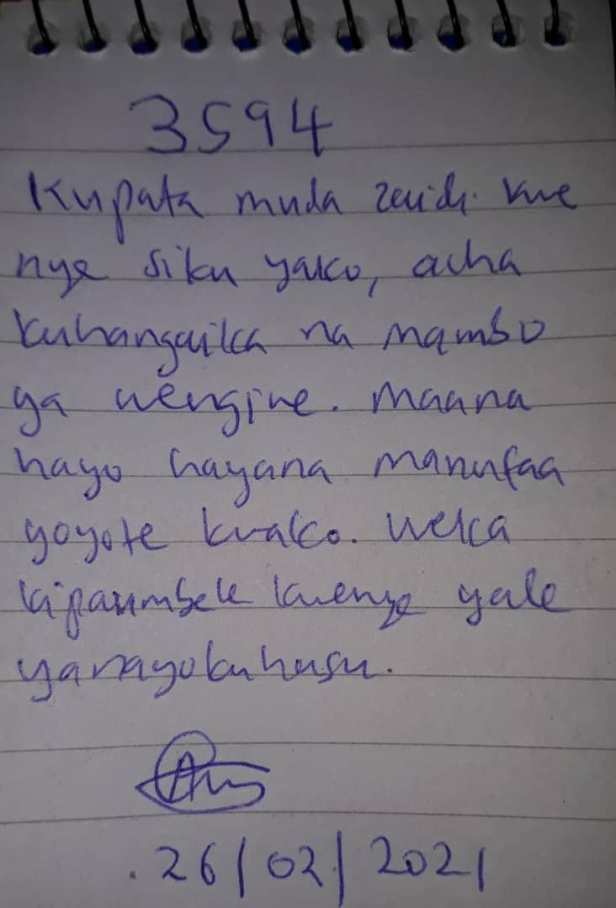 3594
Kupata muda zaidi kwe
nye siku yako, acha
kuhangaika na mambo
ya wengine. maana
hayo hayana manufaa
yoyote kwako. weka
kipaumbele kwenye yale
yanayokuhusu.
26/02/2021